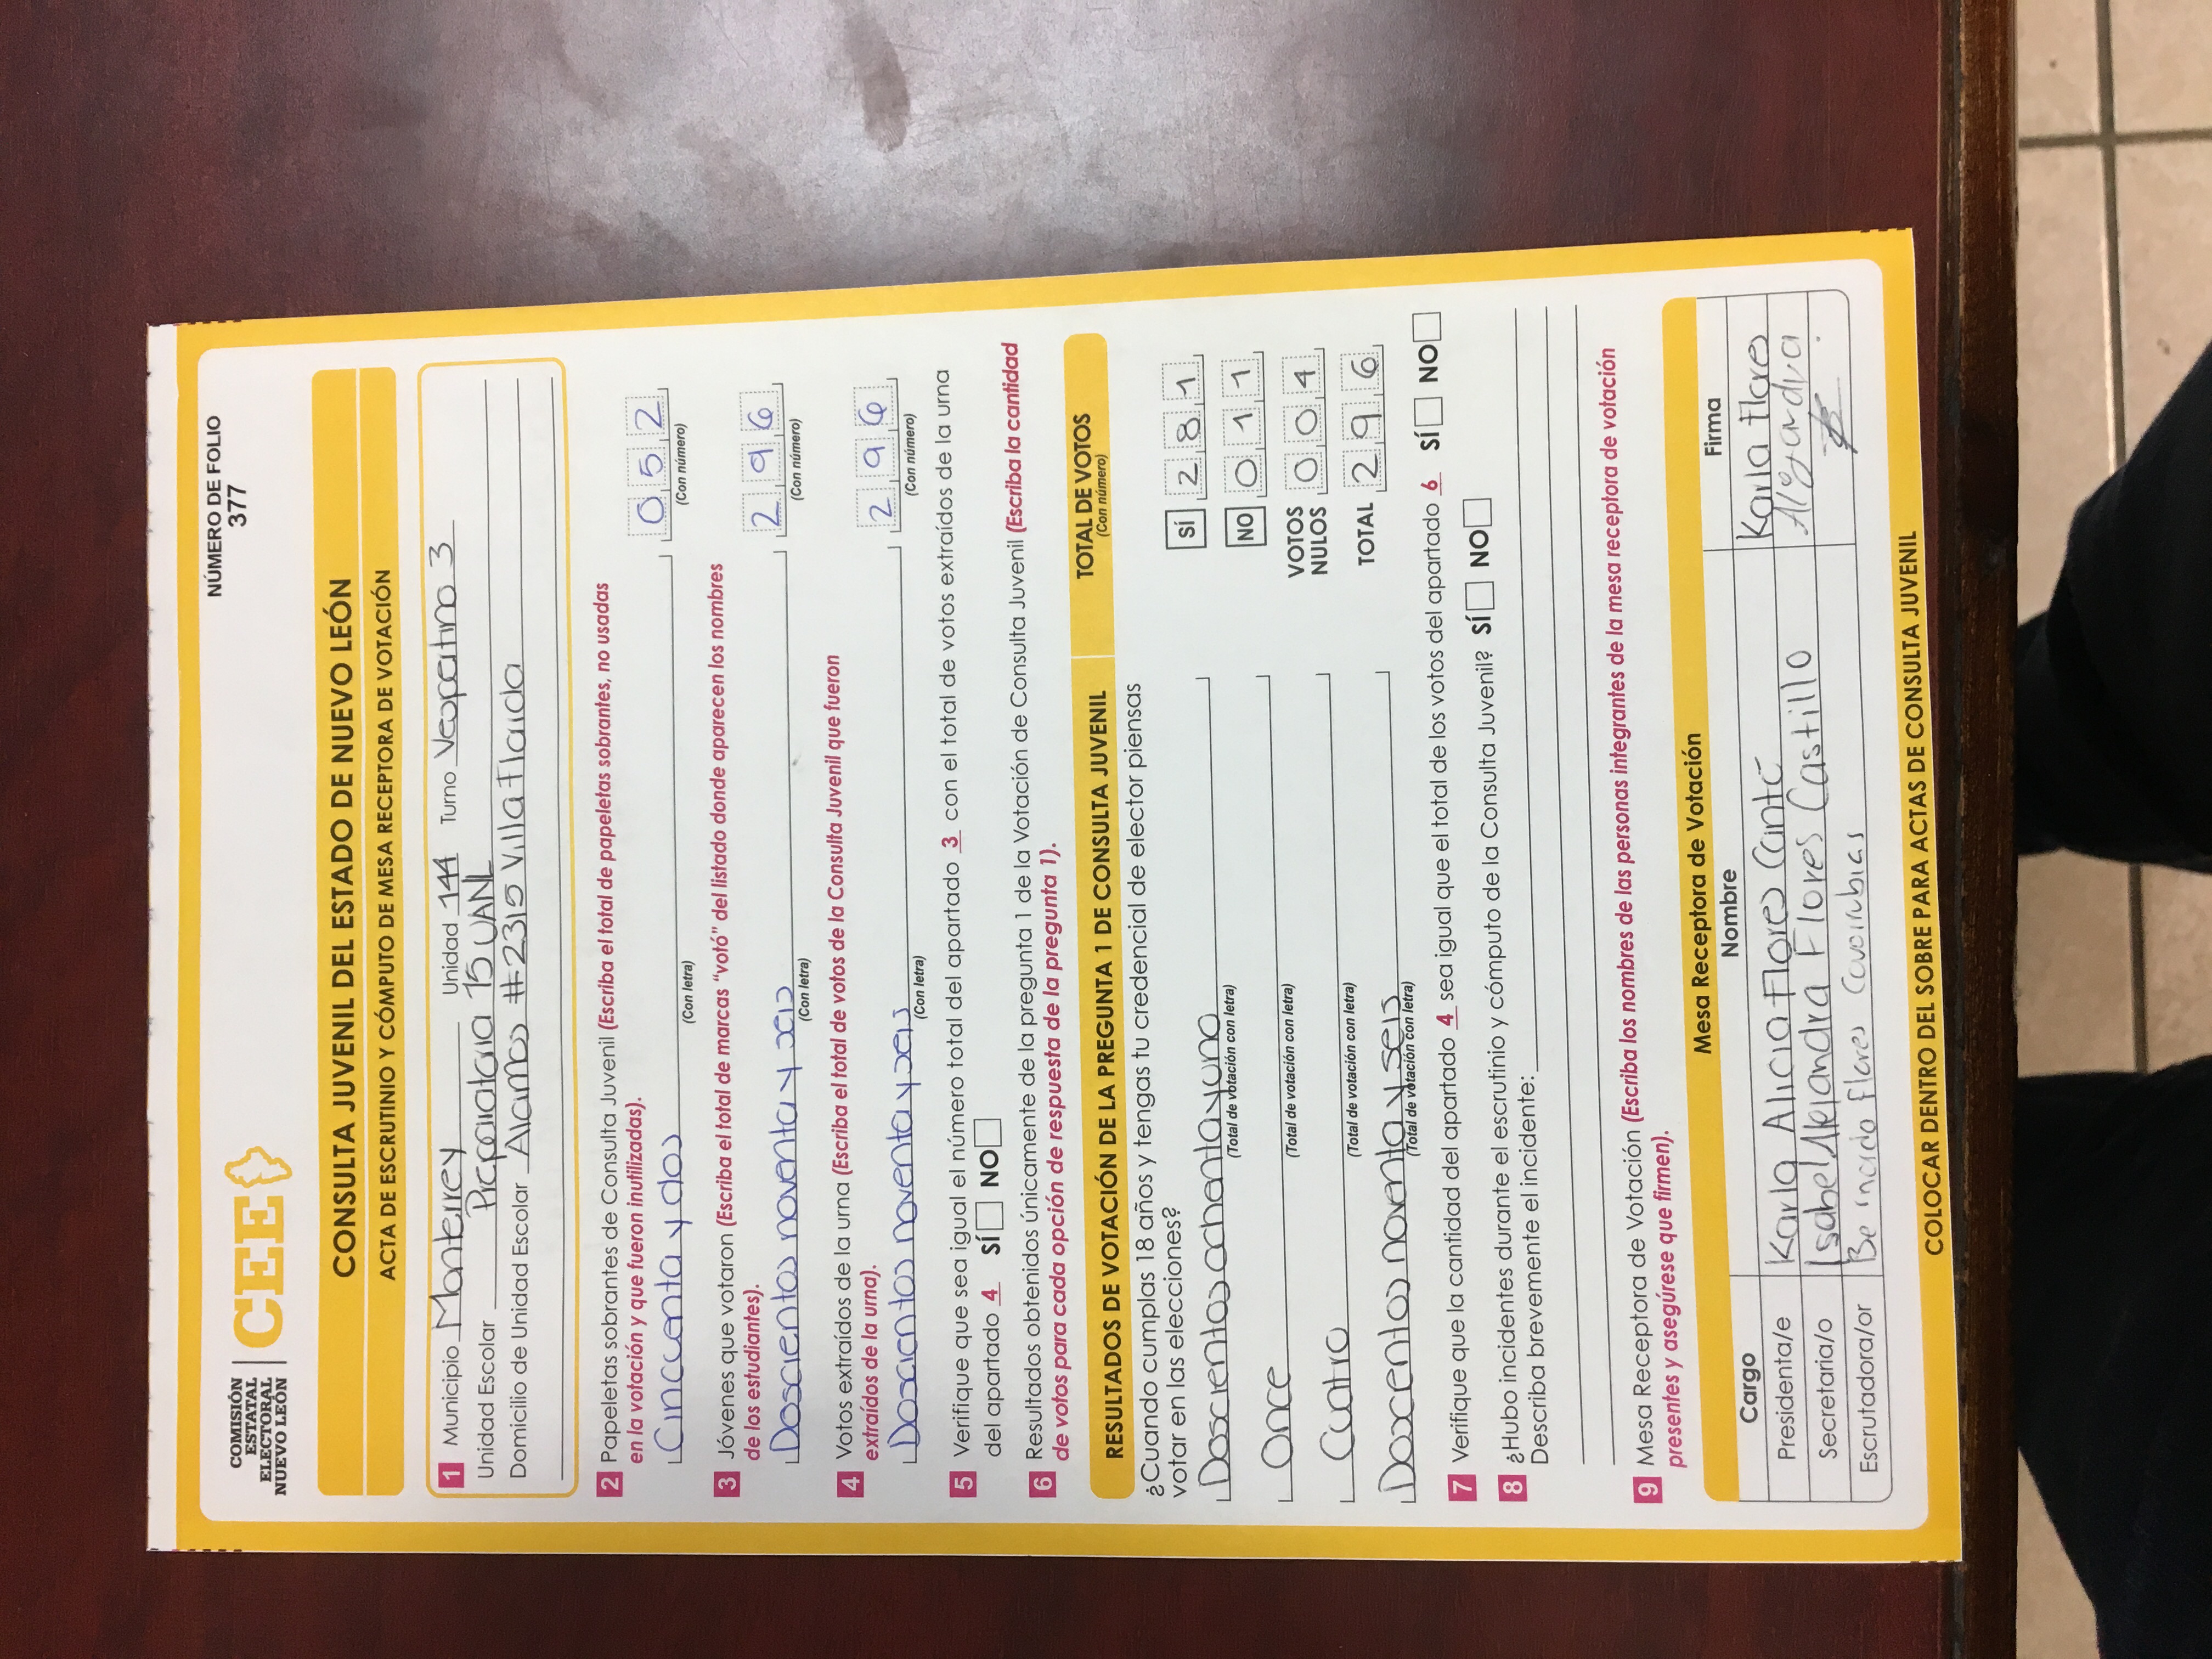 COMISIÓN
ESTATAL
ELECTORAL
NUEVO LEÓN
CEE
NÚMERO DE FOLIO
377
CONSULTA JUVENIL DEL ESTADO DE NUEVO LEÓN
ACTA DE ESCRUTINIO Y CÓMPUTO DE MESA RECEPTORA DE VOTACIÓN
1 Municipio Monterrey Unidad 144 Turno Vespertino 3
Unidad Escolar Preparatoria 15 UANL
Domicilio de Unidad Escolar Alamos #2315 Villa Florida
2 Papeletas sobrantes de Consulta Juvenil (Escriba el total de papeletas sobrantes, no usadas
en la votación y que fueron inutilizadas).
Cincuenta y dos 052
(Con letra) (Con número)
3 Jóvenes que votaron (Escriba el total de marcas "votó" del listado donde aparecen los nombres
de los estudiantes).
Doscientos noventa y seis 296
(Con letra) (Con número)
4 Votos extraídos de la urna (Escriba el total de votos de la Consulta Juvenil que fueron
extraídos de la urna).
Doscientos noventa y seis 296
(Con letra) (Con número)
5 Verifique que sea igual el número total del apartado 3 con el total de votos extraídos de la urna
del apartado 4 SÍ NO
6 Resultados obtenidos únicamente de la pregunta 1 de la Votación de Consulta Juvenil (Escriba la cantidad
de votos para cada opción de respuesta de la pregunta 1).
RESULTADOS DE VOTACIÓN DE LA PREGUNTA 1 DE CONSULTA JUVENIL TOTAL DE VOTOS
(Con número)
¿Cuando cumplas 18 años y tengas tu credencial de elector piensas
votar en las elecciones?
Doscientos ochenta y uno SÍ 281
(Total de votación con letra)
Once NO 011
(Total de votación con letra)
Cuatro VOTOS NULOS 004
(Total de votación con letra)
Doscentos noventa y seis TOTAL 296
(Total de votación con letra)
7 Verifique que la cantidad del apartado 4 sea igual que el total de los votos del apartado 6 SÍ NO
8 ¿Hubo incidentes durante el escrutinio y cómputo de la Consulta Juvenil? SÍ NO
Describa brevemente el incidente:
9 Mesa Receptora de Votación (Escriba los nombres de las personas integrantes de la mesa receptora de votación
presentes y asegúrese que firmen).
Mesa Receptora de Votación
Cargo Nombre Firma
Presidenta/e Karla Alicia Flores Cantú Karla Flores
Secretaria/o Isabel Alejandra Flores Castillo Alejandra
Escrutadora/or Flores
COLOCAR DENTRO DEL SOBRE PARA ACTAS DE CONSULTA JUVENIL